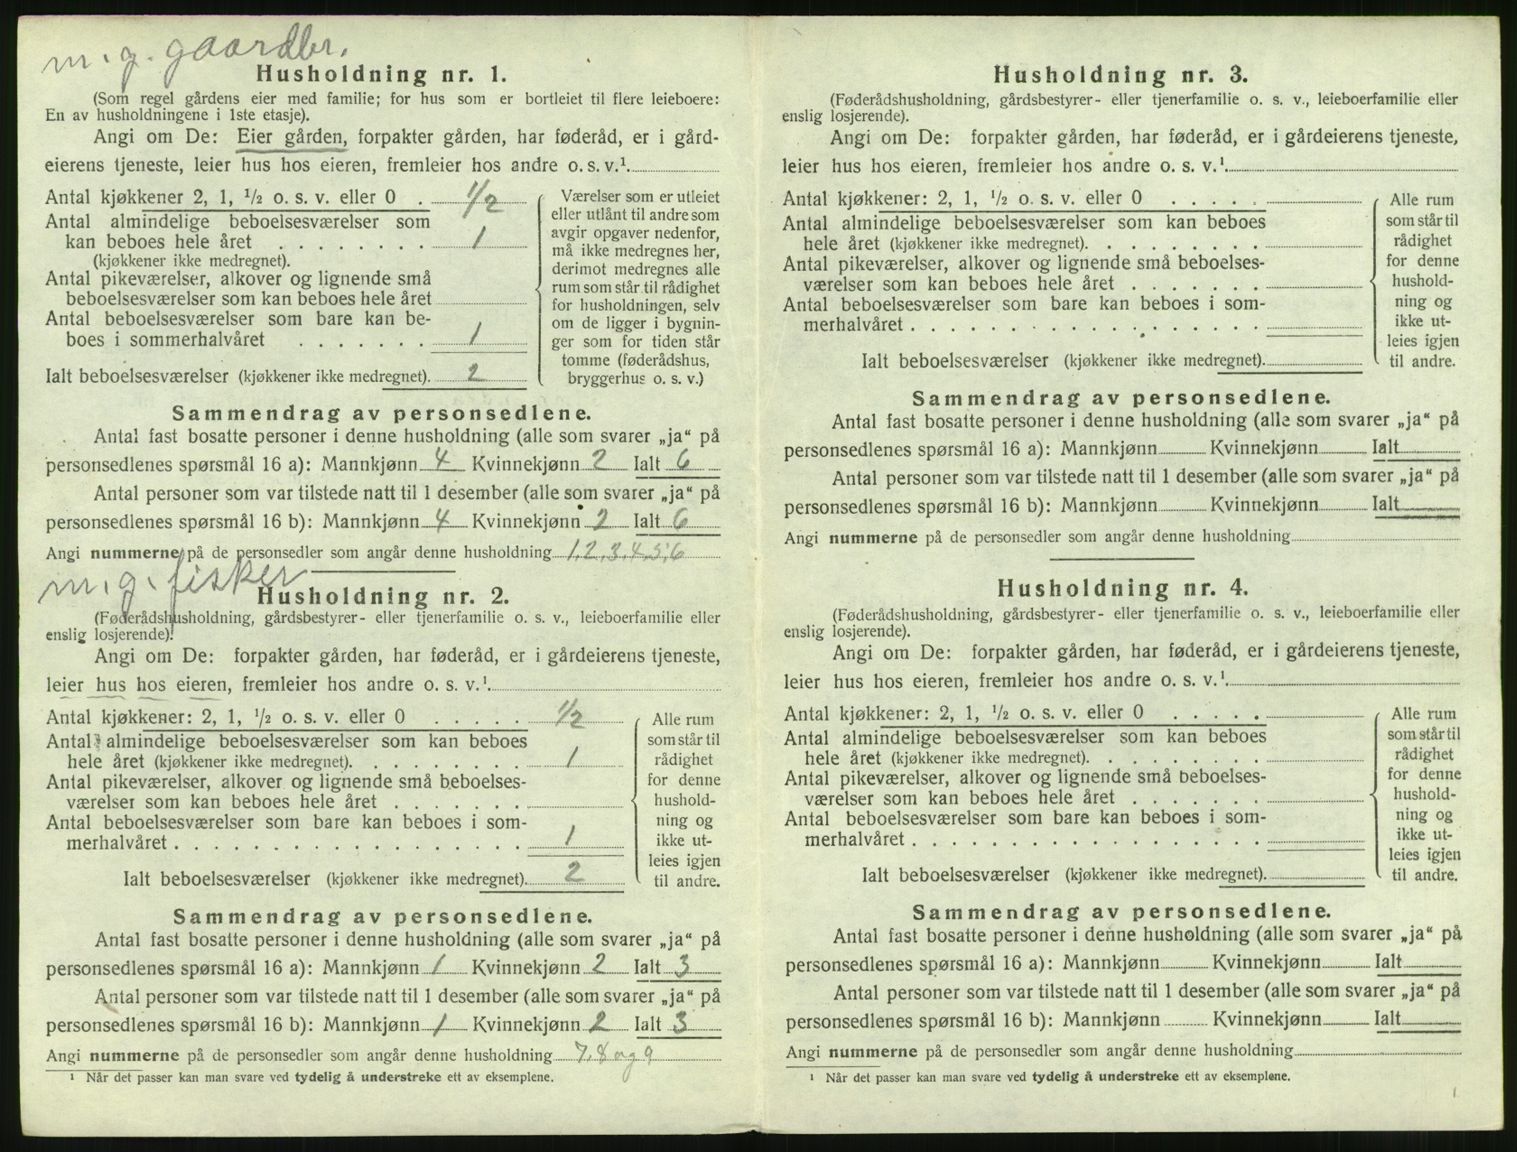 m. g. gaardbr.
Husholdning nr. 1.
(Som regel gårdens eier med familie; for hus som er bortleiet til flere leieboere:
En av husholdningene i 1ste etasje).
Angi om De: Eier gården, forpakter gården, har føderåd, er i gård-
eierens tjeneste, leier hus hos eieren, fremleier hos andre o. s. v.¹.
Antal kjøkkener 2, 1, ½ o. s. v. eller 0 . 1/2
Antal almindelige beboelsesværelser som
kan beboes hele året . . . . . . . . 1
(kjøkkener ikke medregnet).
Antal pikeværelser, alkover og lignende små
beboelsesværelser som kan beboes hele året
Antal beboelsesværelser som bare kan be-
boes i sommerhalvåret . . . . . . . 1
Ialt beboelsesværelser (kjøkkener ikke medregnet). 2
Værelser som er utleiet
eller utlånt til andre som
avgir opgaver nedenfor,
må ikke medregnes her,
derimot medregnes alle
rum som står til rådighet
for husholdningen, selv
om de ligger i bygnin-
ger som for tiden står
tomme (føderådshus,
bryggerhus o. s. v.)
Sammendrag av personsedlene.
Antal fast bosatte personer i denne husholdning (alle som svarer „ja“ på
personsedlenes spørsmål 16 a): Mannkjønn 4 Kvinnekjønn 2 Ialt 6
Antal personer som var tilstede natt til 1 desember (alle som svarer „ja“ på
personsedlenes spørsmål 16 b): Mannkjønn 4 Kvinnekjønn 2 Ialt 6
Angi nummerne på de personsedler som angår denne husholdning 1,2,3,4,5,6
m. g. fisker
Husholdning nr. 2.
(Føderådshusholdning, gårdsbestyrer- eller tjenerfamilie o. s. v., leieboerfamilie eller
enslig losjerende).
Angi om De: forpakter gården, har føderåd, er i gårdeierens tjeneste,
leier hus hos eieren, fremleier hos andre o. s. v.¹.
Antal kjøkkener: 2, 1, ½ o. s. v. eller 0 . . . . . 1/2
Antal almindelige beboelsesværelser som kan beboes
hele året (kjøkkener ikke medregnet). . . . . . . . 1
Antal pikeværelser, alkover og lignende små beboelses-
værelser som kan beboes hele året . . . . . . .
Antal beboelsesværelser som bare kan beboes i som-
merhalvåret . . . . . . . . . . . . . . . . . . 1
Ialt beboelsesværelser (kjøkkener ikke medregnet). 2
Alle rum
som står til
rådighet
for denne
hushold-
ning og
ikke ut-
leies igjen
til andre.
Sammendrag av personsedlene.
Antal fast bosatte personer i denne husholdning (alle som svarer „ja“ på
personsedlenes spørsmål 16 a): Mannkjønn 1 Kvinnekjønn 2 Ialt 3
Antal personer som var tilstede natt til 1 desember (alle som svarer „ja“ på
personsedlenes spørsmål 16 b): Mannkjønn 1 Kvinnekjønn 2 Ialt 3
Angi nummerne på de personsedler som angår denne husholdning 7, 8 og 9
¹ Når det passer kan man svare ved tydelig å understreke ett av eksemplene.
Husholdning nr. 3.
(Føderådshusholdning, gårdsbestyrer- eller tjenerfamilie o. s. v., leieboerfamilie eller
enslig losjerende).
Angi om De: forpakter gården, har føderåd, er i gårdeierens tjeneste,
leier hus hos eieren, fremleier hos andre o. s. v.¹.
Antal kjøkkener: 2, 1, ½ o. s. v. eller 0 . . . . .
Antal almindelige beboelsesværelser som kan beboes
hele året (kjøkkener ikke medregnet). . . . . . . .
Antal pikeværelser, alkover og lignende små beboelses-
værelser som kan beboes hele året . . . . . . .
Antal beboelsesværelser som bare kan beboes i som-
merhalvåret . . . . . . . . . . . . . . . . . .
Ialt beboelsesværelser (kjøkkener ikke medregnet).
Alle rum
som står til
rådighet
for denne
hushold-
ning og
ikke ut-
leies igjen
til andre.
Sammendrag av personsedlene.
Antal fast bosatte personer i denne husholdning (alle som svarer „ja“ på
personsedlenes spørsmål 16 a): Mannkjønn Kvinnekjønn Ialt
Antal personer som var tilstede natt til 1 desember (alle som svarer „ja“ på
personsedlenes spørsmål 16 b): Mannkjønn Kvinnekjønn Ialt
Angi nummerne på de personsedler som angår denne husholdning
Husholdning nr. 4.
(Føderådshusholdning, gårdsbestyrer- eller tjenerfamilie o. s. v., leieboerfamilie eller
enslig losjerende).
Angi om De: forpakter gården, har føderåd, er i gårdeierens tjeneste,
leier hus hos eieren, fremleier hos andre o. s. v.¹.
Antal kjøkkener: 2, 1, ½ o. s. v. eller 0 . . . . .
Antal almindelige beboelsesværelser som kan beboes
hele året (kjøkkener ikke medregnet). . . . . . . .
Antal pikeværelser, alkover og lignende små beboelses-
værelser som kan beboes hele året . . . . . . .
Antal beboelsesværelser som bare kan beboes i som-
merhalvåret . . . . . . . . . . . . . . . . . .
Ialt beboelsesværelser (kjøkkener ikke medregnet).
Alle rum
som står til
rådighet
for denne
hushold-
ning og
ikke ut-
leies igjen
til andre.
Sammendrag av personsedlene.
Antal fast bosatte personer i denne husholdning (alle som svarer „ja“ på
personsedlenes spørsmål 16 a): Mannkjønn Kvinnekjønn Ialt
Antal personer som var tilstede natt til 1 desember (alle som svarer „ja“ på
personsedlenes spørsmål 16 b): Mannkjønn Kvinnekjønn Ialt
Angi nummerne på de personsedler som angår denne husholdning
¹ Når det passer kan man svare ved tydelig å understreke ett av eksemplene.